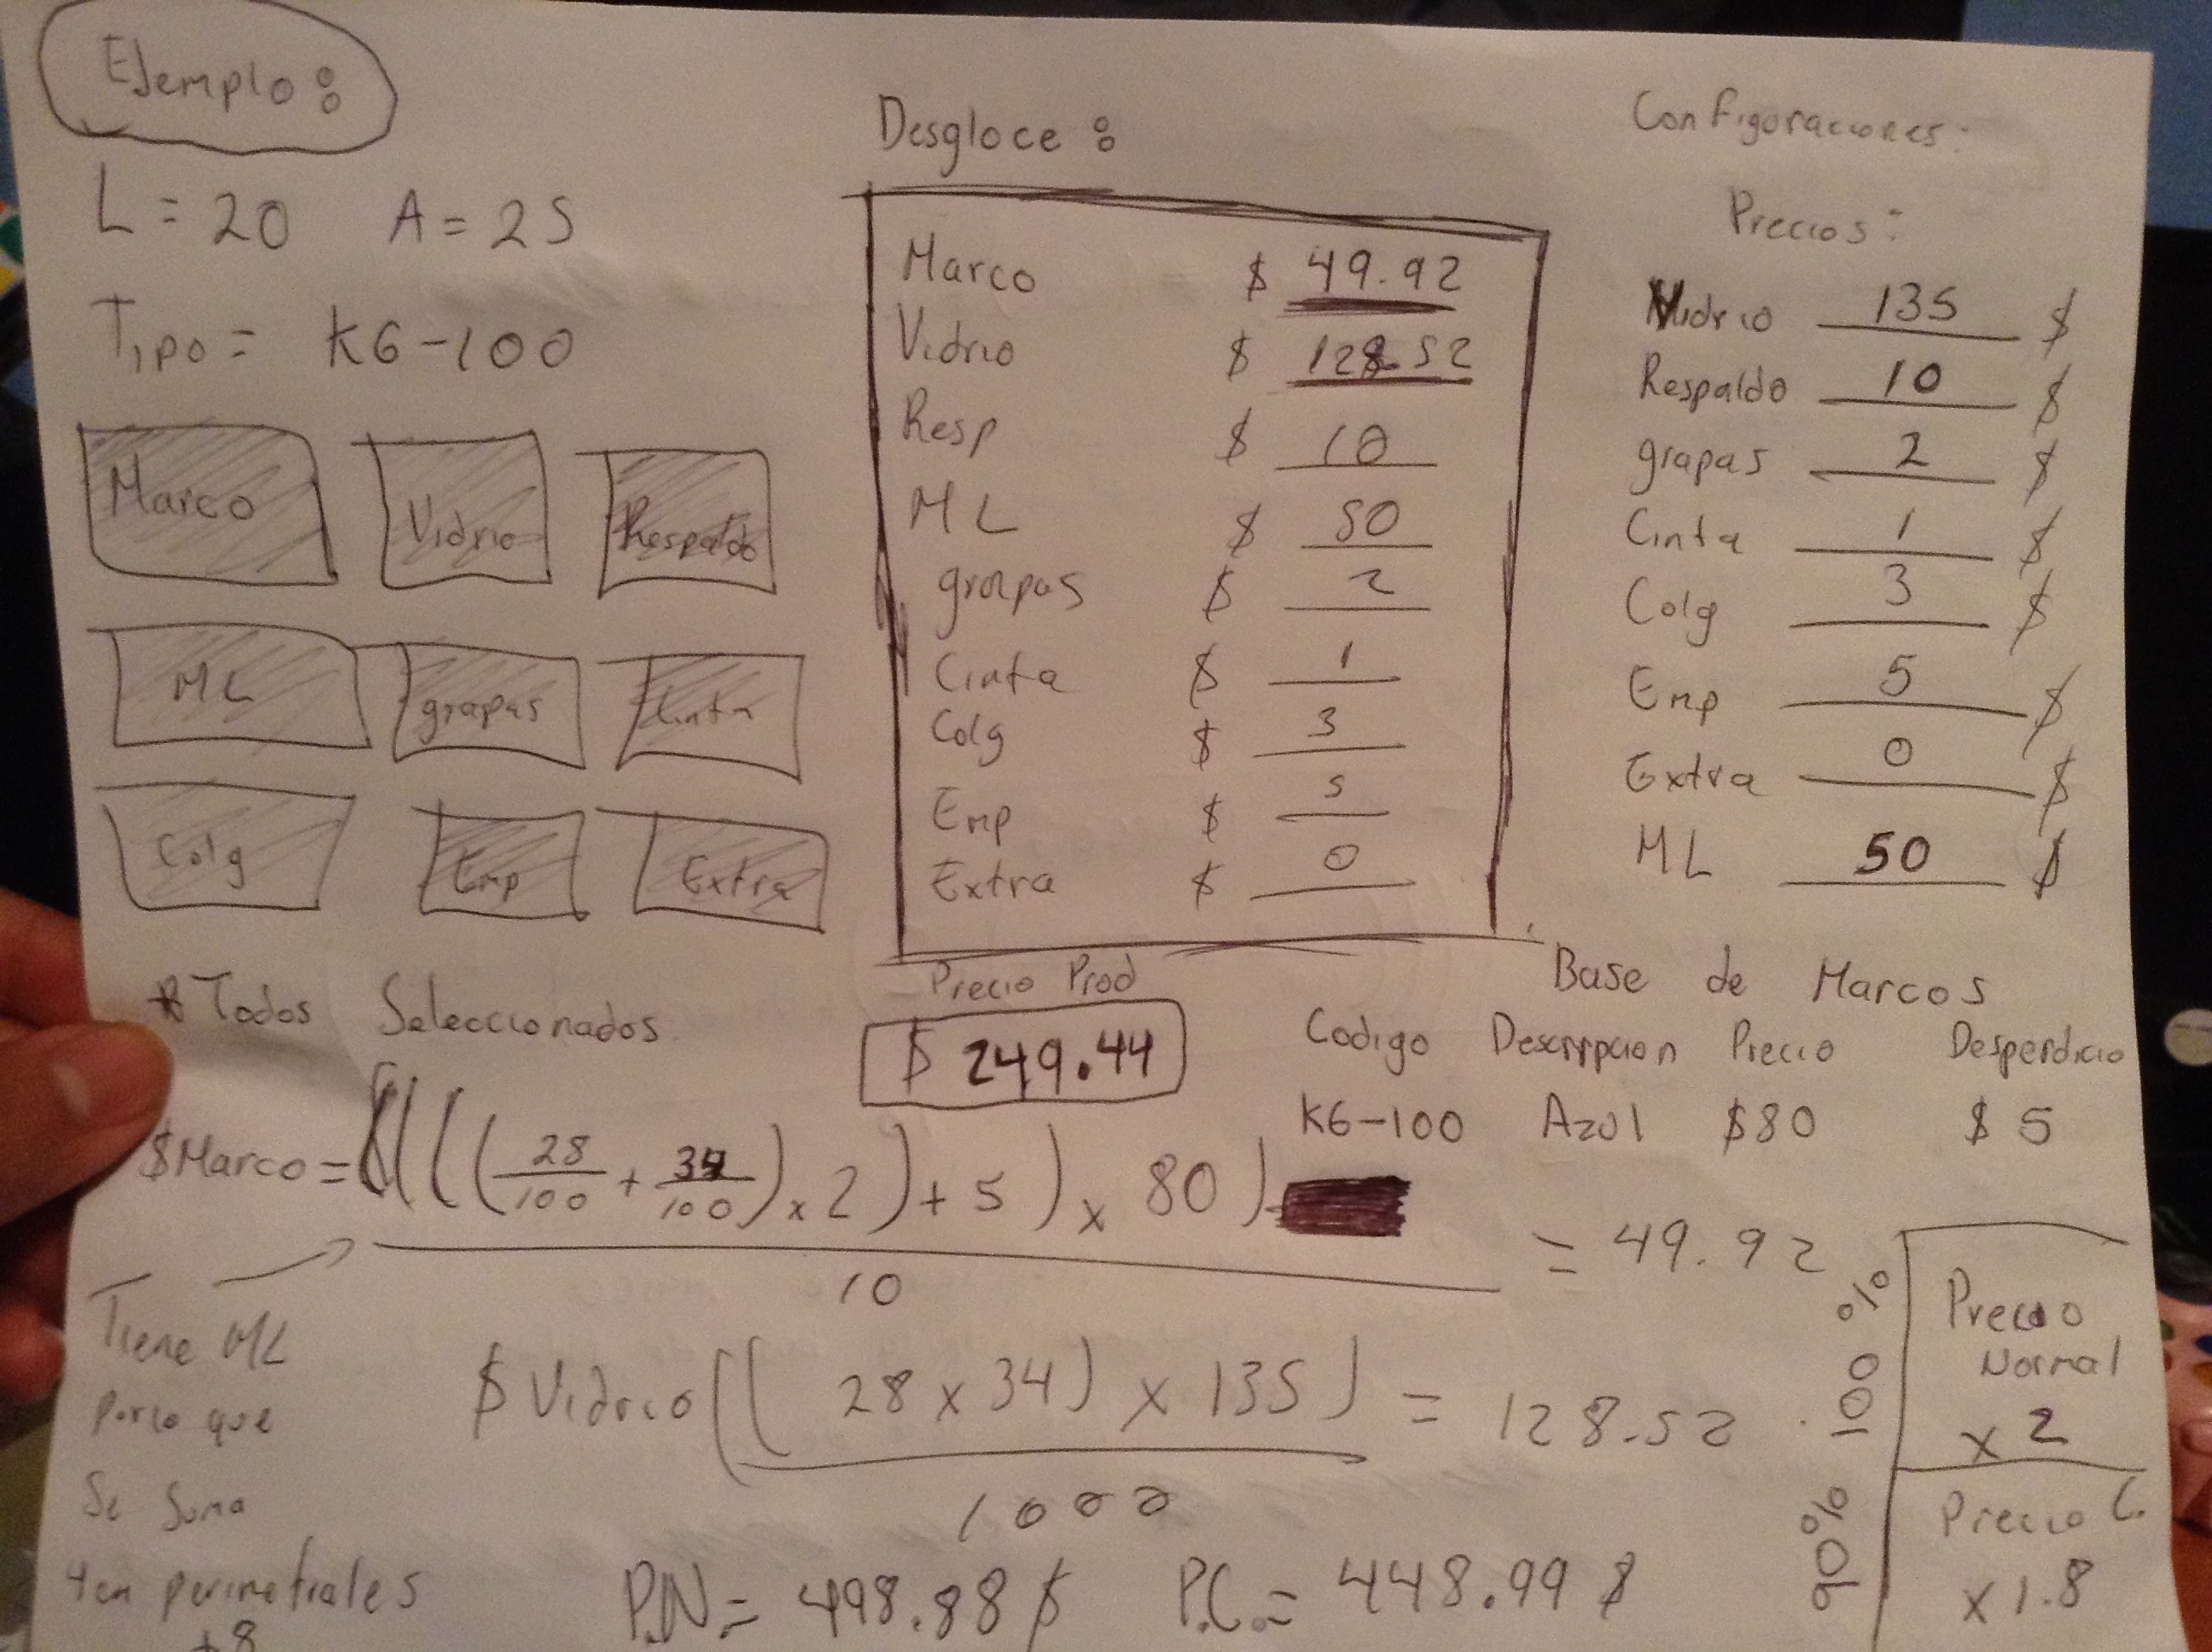 Ejemplo:
L = 20 A = 25
Tipo = K6-100
Marco Vidrio Respaldo
ML grapas Cinta
Colg Emp Extra
* Todos Seleccionados
Desgloce:
Marco $ 49.92
Vidrio $ 128.52
Resp $ 10
ML $ 50
grapas $ 2
Cinta $ 1
Colg $ 3
Emp $ 5
Extra $ 0
Precio Prod
$ 249.44
Configuraciones:
Precios:
Vidrio 135 $
Respaldo 10 $
grapas 2 $
Cinta 1 $
Colg 3 $
Emp 5 $
Extra 0 $
ML 50 $
Base de Marcos
Codigo Descripcion Precio Desperdicio
K6-100 Azul $80 $ 5
$Marco = ((((28/100 + 34/100) x 2) + 5) x 80) / 10 = 49.92
Tiene ML
por lo que
Se suma
4cm perimetrales
+8
$Vidrio ((28 x 34) x 135) / 1000 = 128.52
P.N = 498.88 $ P.C. = 448.99 $
100 %
Precio
Normal
x 2
90%
Precio C.
x 1.8